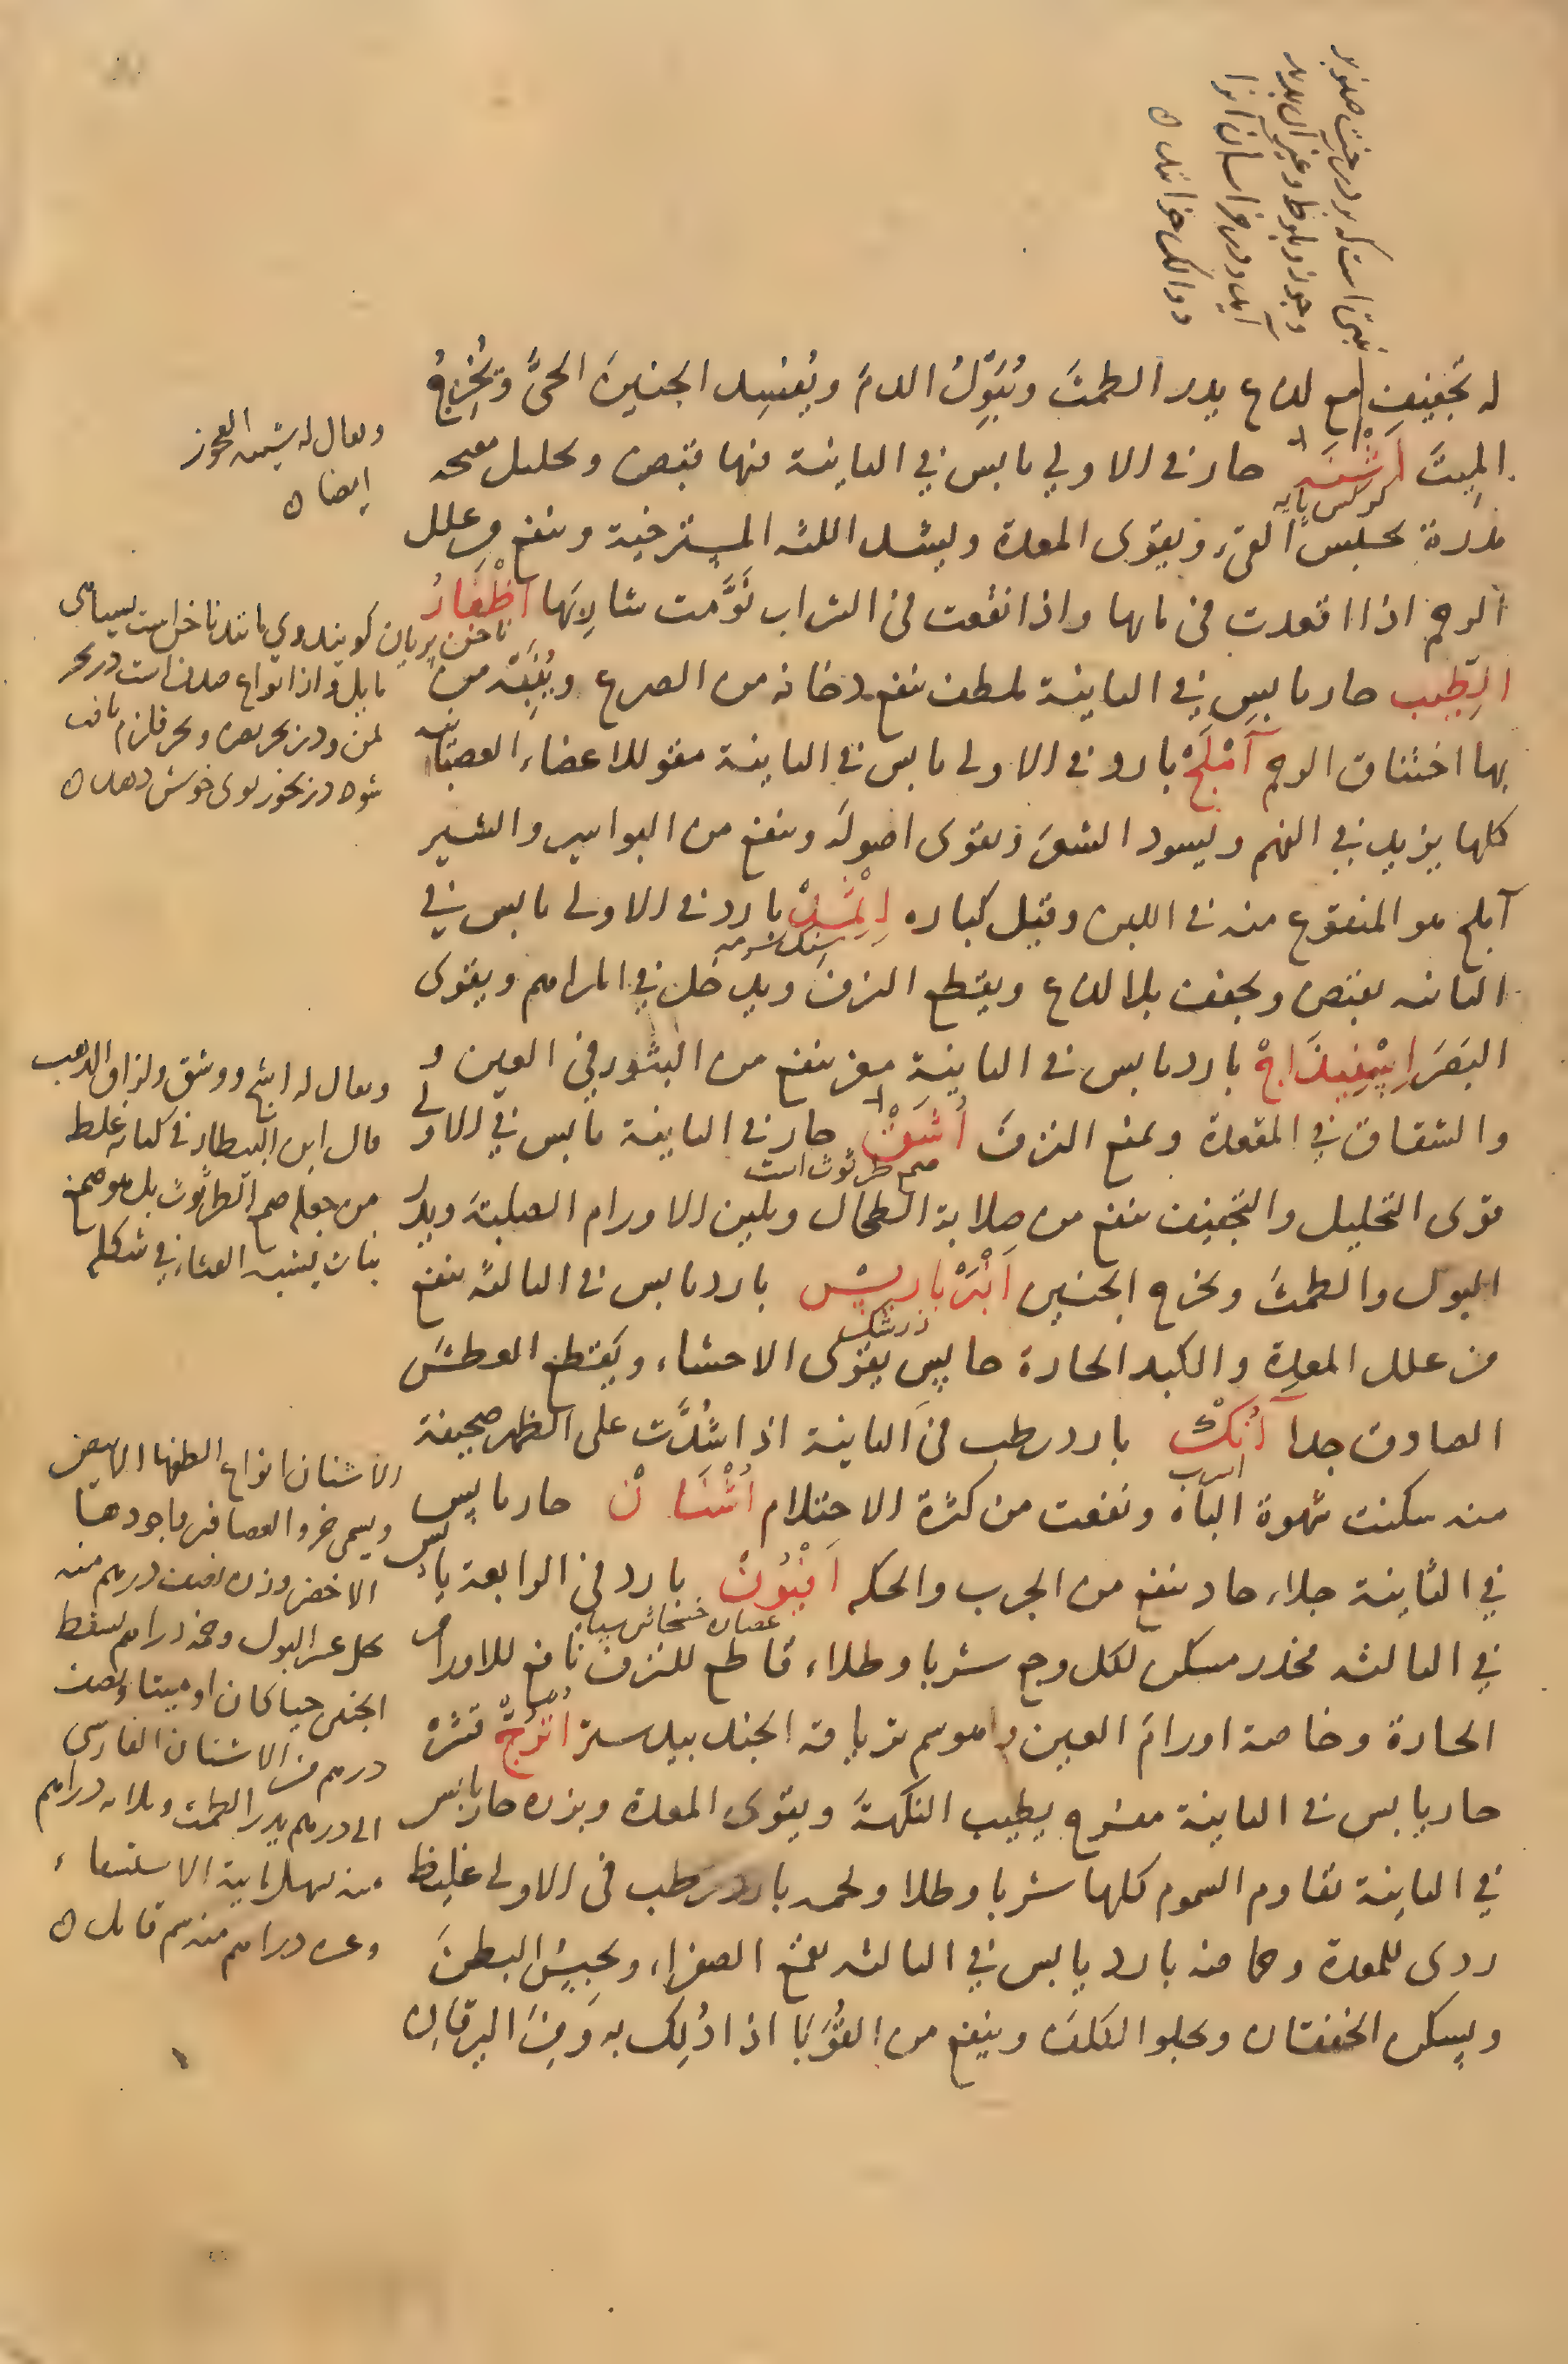 نبتی است که بر درخت صنوبر
و جوز و بلوط و غیر آن پدید
آید و در خراسان آنرا
دوالک خوانند ه
له تجفيف مع لذاع يدر الطمثَ ويُبَوِّلُ الدمَ ويُفسِد الجنينَ الحىَّ ويُخرِجُ
الميتَ اُشْنَه حار فى الاولي يابس في الثانية فيها قبض وتحليل
كرسكس پايه
مدرة تحبس القىء ويقوى المعدة ويشد اللثه المسترخية وينفع من علل
الرحم اذا اقعدت فى مائها واذا نقعت فى الشراب نَوَّمت شارِبَها اَظْفَارُ
الطِّيب حار يابس في الثانية ملطف ينفع دخانه من الصرع ويُنَبِّه من
بها اختناق الرحم آمْلَجْ بارد فى الاولى يابس فى الثانية مقو للاعضاء العصبانيه
كلها يزيد في الفهم ويسود الشعَر ويقوى اصولَه وينفع من البواسير والشير
آملج هو المنقوع منه فى اللبن وقيل كباره اِثْمِدْ بارد فى الاولى يابس في
سنك سرمه
الثانيه يقبض ويجفف بلا لذاع ويقطع النزفَ ويدخل في المراهم ويقوى
البَصَرَ اِسْفِيذَاجْ بارد يابس فى الثانية مغر ينفع من البثور في العين و
والشقاق في المقعدة ويمنع النزفَ اُشَّقْ حار فى الثانية يابس في الاولى
صمغ طرثوث است
قوى التحليل والتجفيف ينفع من صلابة الطحال ويلين الاورام الصلبة ويدر
البول والطمثَ ويخرج الجنين اَنْبَرْبَاريْس بارد يابس فى الثالثة ينفع
زرشك
من علل المعدة والكبد الحارة حابس يقوى الاحشاء ويَقطع العطشَ
الصادق جدا آنُكْ بارد رطب فى الثانية اذا شُدَّت على الظهر صحيفة
اسرب
منه سكنت شهوة الباه ونفعت من كثرة الاحتلام اُشْنَانْ حار يابس
في الثانية جلاء حاد ينفع من الجرب والحكه اَفْيُونْ بارد فى الرابعة يابس
عصاره خشخاش سياه
في الثالثه مخدر مسكن لكل وجع شربا وطلاء قاطع للنزف نافع للاورام
الحارة وخاصة اورام العين وهو سم ترياقه الجند بيدستر اُتْرُجّْ قشره
حار يابس فى الثانية مفرح يطيب النكهةَ ويقوى المعدة وبزره حار يابس
في الثانية تقاوم السموم كلها شربا وطلا ولحمه بارد رطب فى الاولى غليظ
ردى للمعدة وحماضه بارد يابس في الثالثه يقمع الصفراء ويحبِسُ البطنَ
ويسكن الخفقان ويجلو الكلفَ وينفع من القُوَبَا اذا دُلِك به وَمن اليرقان
ويقال له شيبه العجوز
ايضا ه
ناخن پريان كويند وى مانند ناخن است بسياهى
مايل و از انواع صدف است در بحر
يمن و در بحر بصره و بحر قلزم يافت
شود در بخور بوى خوش دهد ه
ويقال له اشج ووشق ولزاق الذهب
قال ابن البيطار فى كتابه غلط
من جعله صمغ الطرثوث بل هو صمغ
نبات يشبه القثاء في شكله
الاشنان انواع الطفها الابيض
ويسمى خرو العصافير واجودها
الاخضر وزن نصف درهم منه
يحل عسر البول وخمسة دراهم يسقط
الجنين حيا كان او ميتا ونصف
درهم من الاشنان الفارسى
الى درهم يدر الطمث وثلاثه دراهم
منه يسهل مايية الاستسقاء
وعشره دراهم منه سم قاتل ه